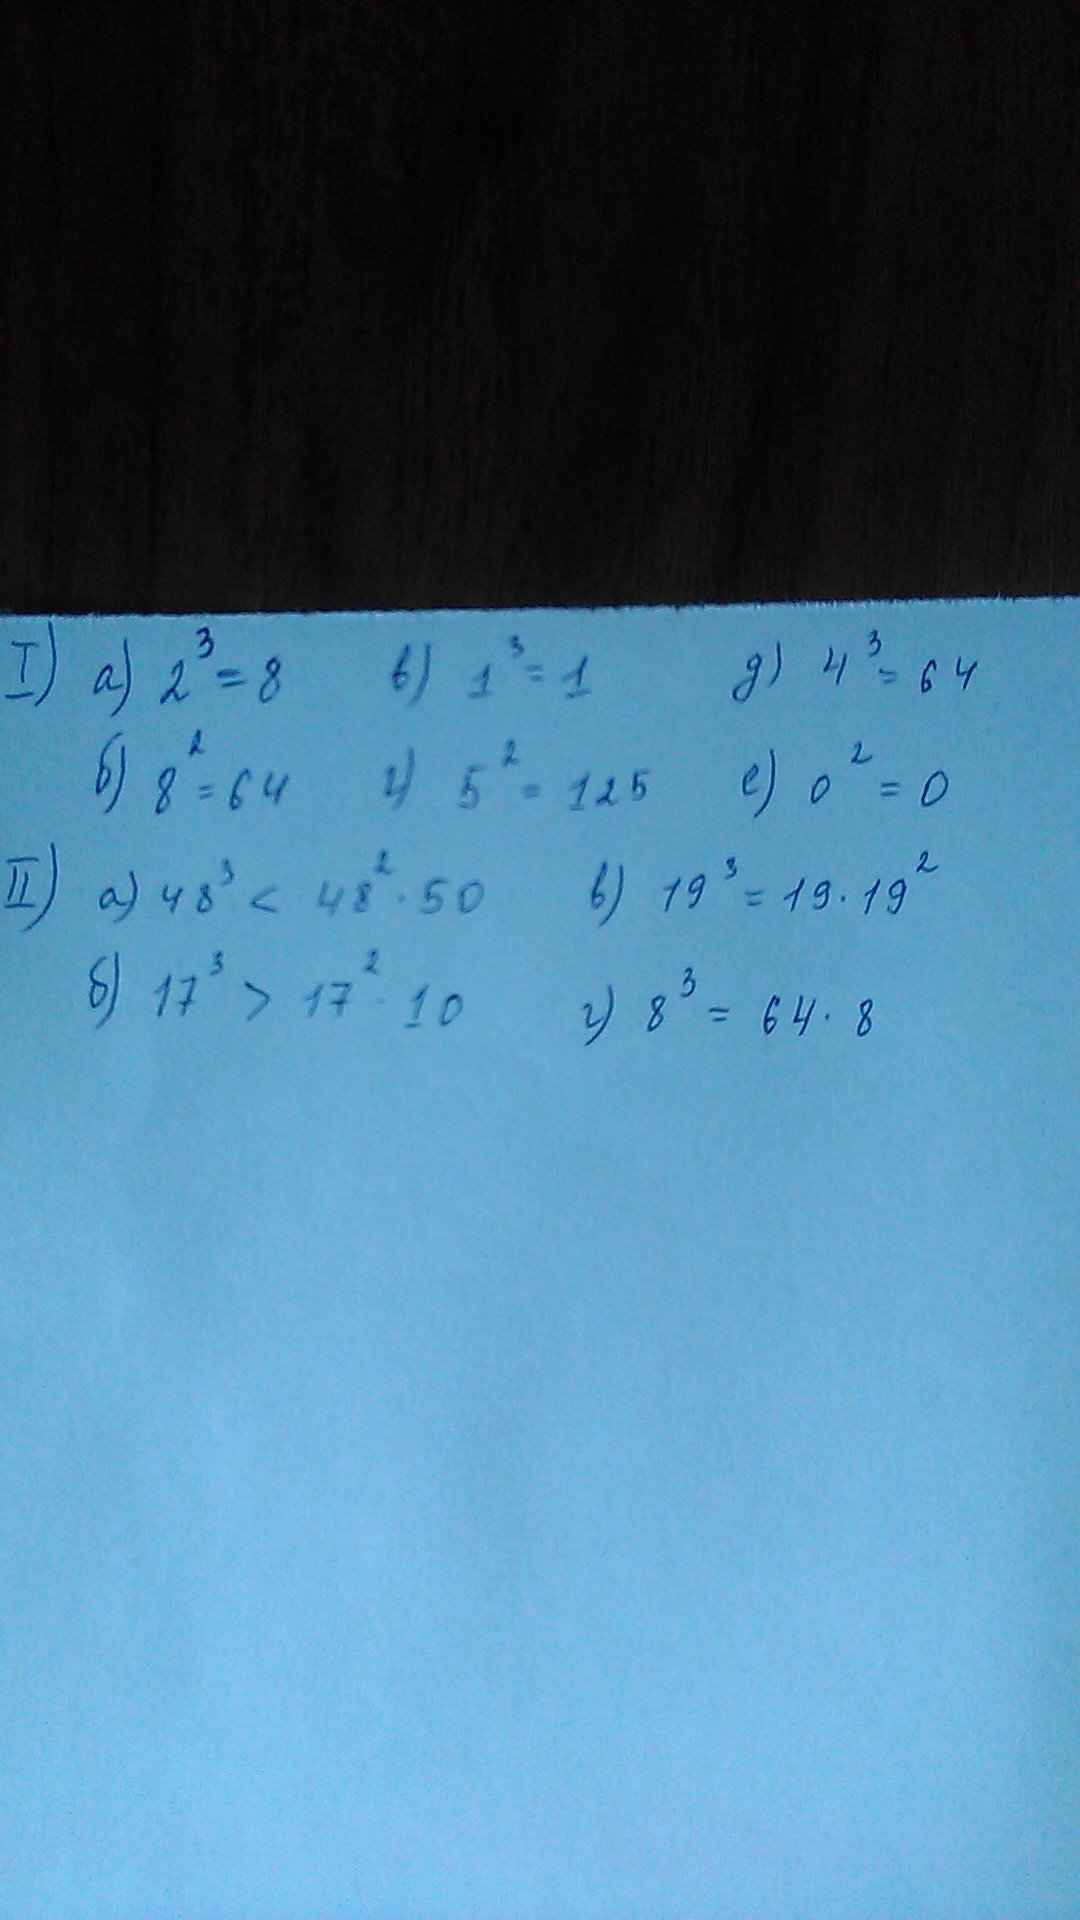 I) а) 2³ = 8 в) 1³ = 1 д) 4³ = 64
б) 8² = 64 г) 5² = 125 е) 0² = 0
II) а) 48³ < 48² · 50 в) 19³ = 19 · 19²
б) 17³ > 17² · 10 г) 8³ = 64 · 8